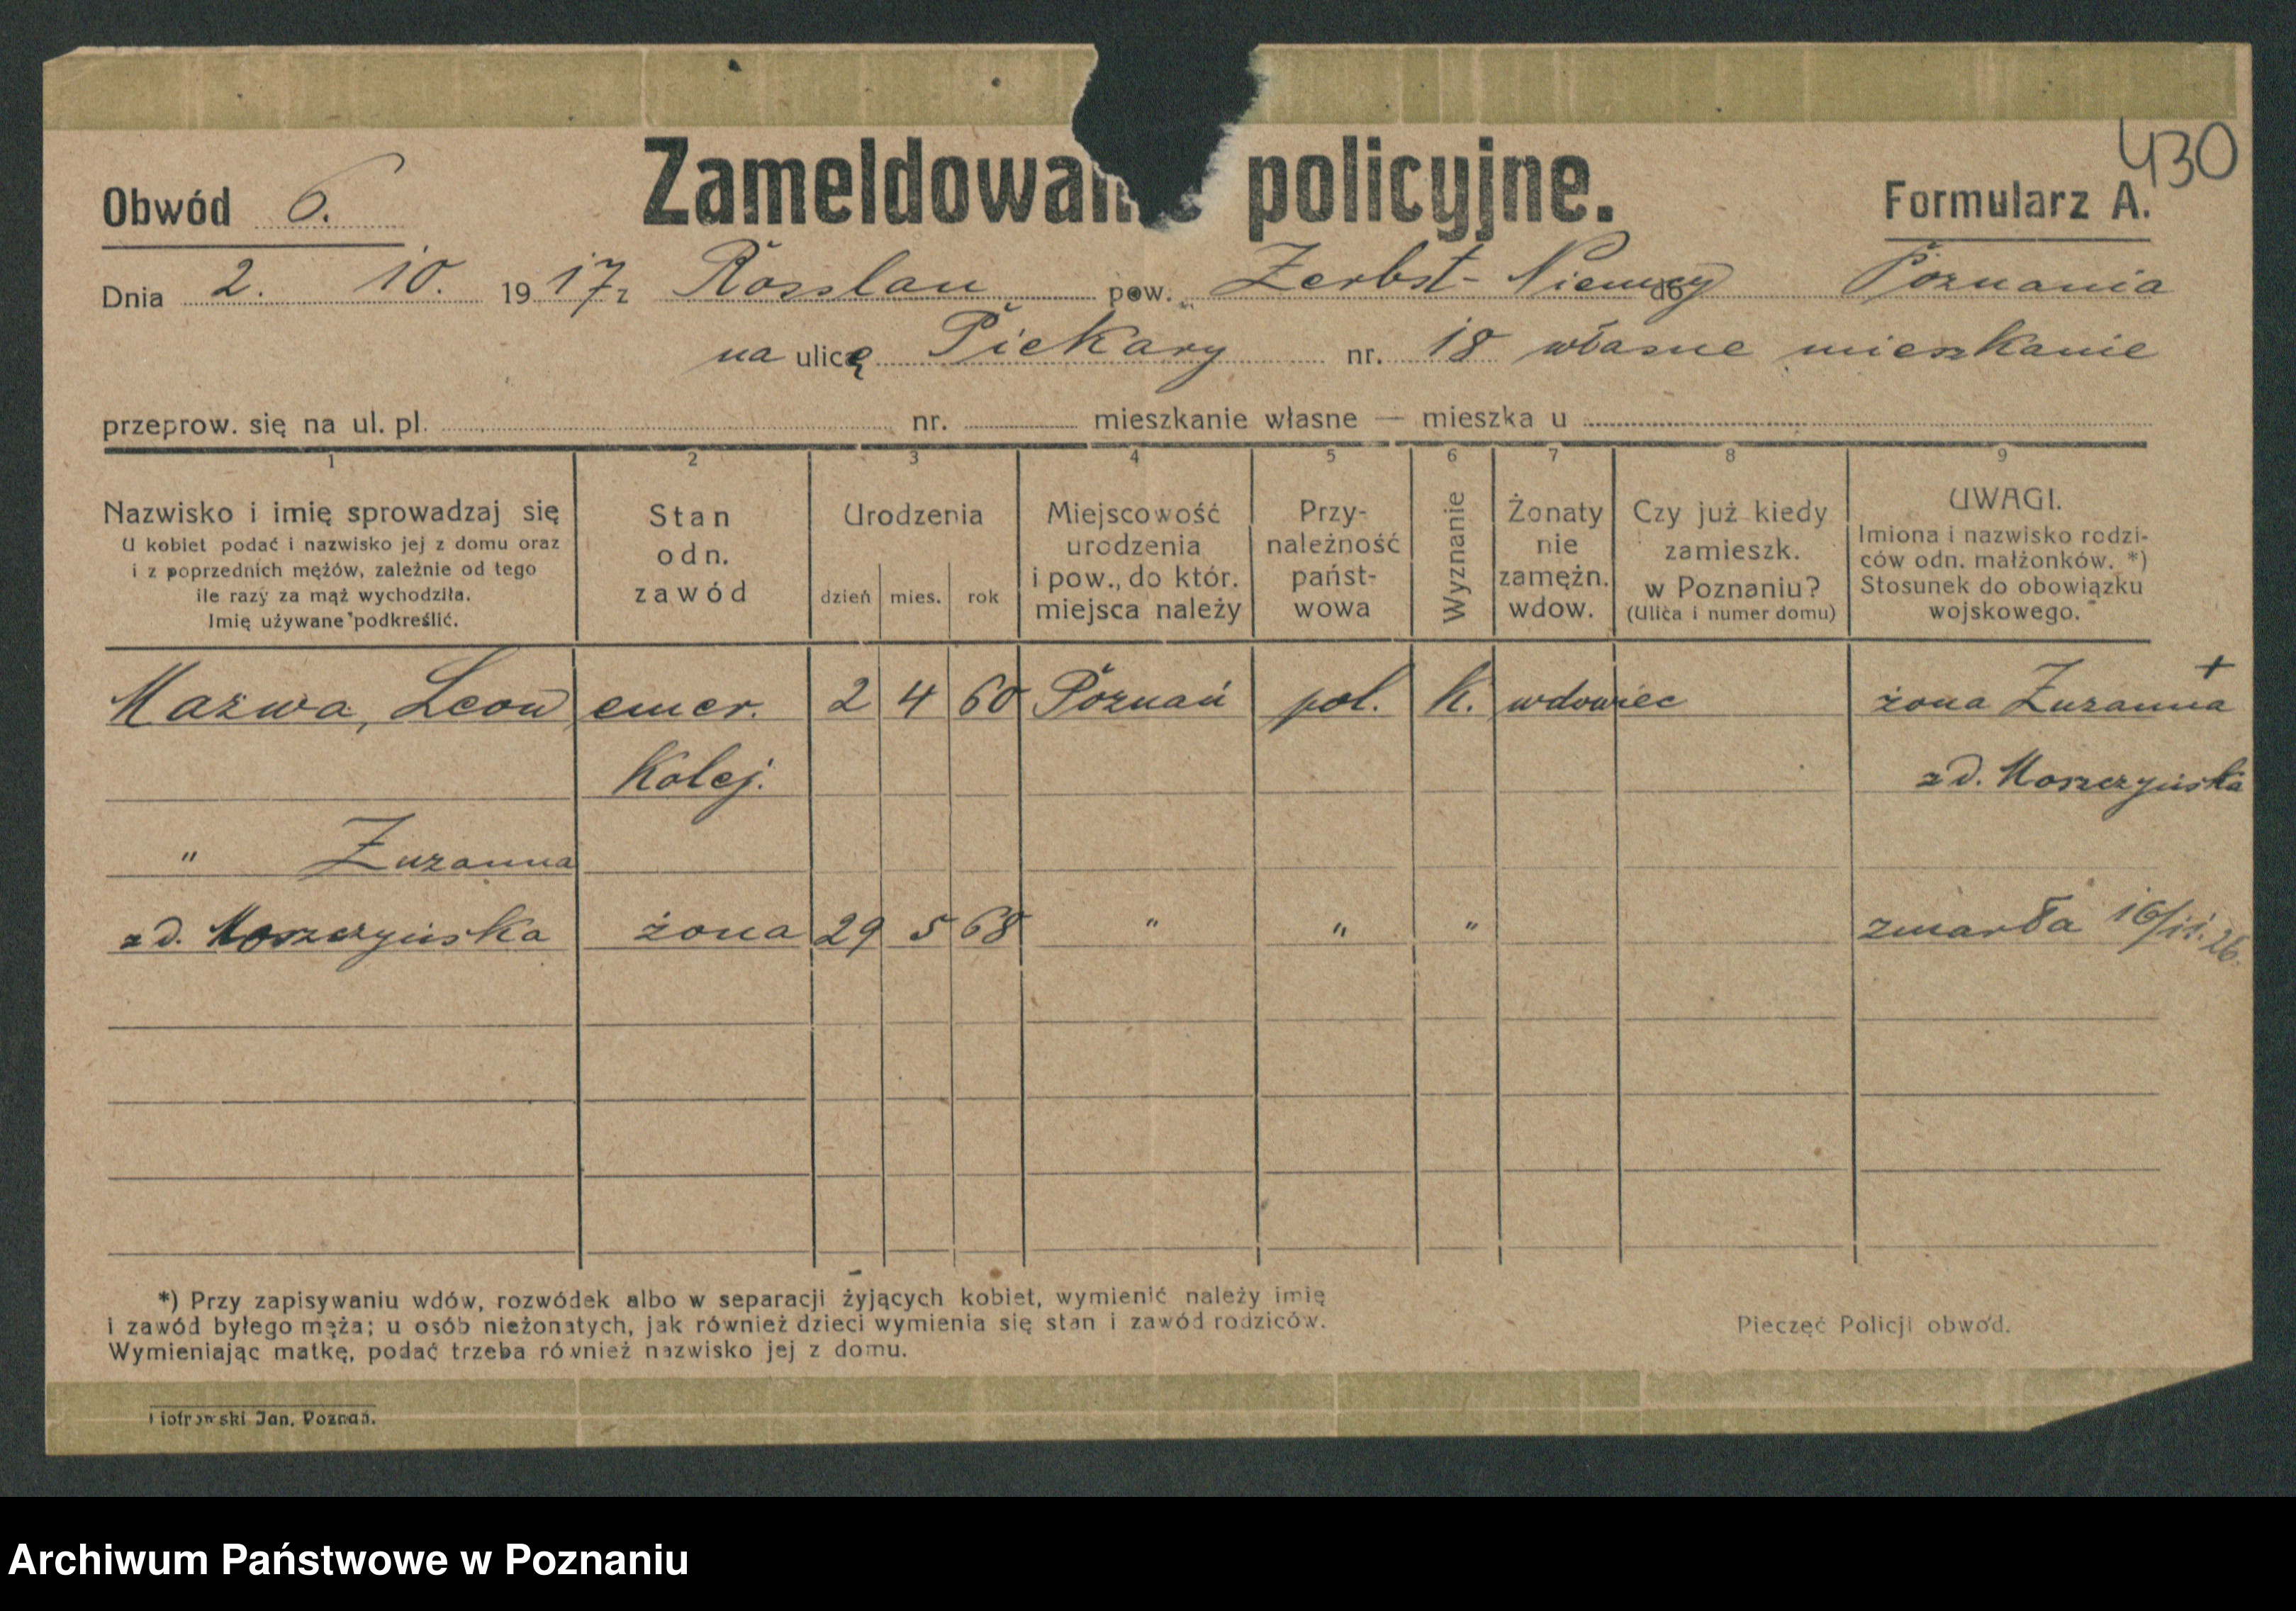 430
Obwód 6. Zameldowanie policyjne. Formularz A.
Dnia 2. 10. 1917 z Rosslau pow. Zerbst - Niemcy do Poznania
na ulicę Piekary nr. 18 własne mieszkanie
przeprow. się na ul. pl. nr. mieszkanie własne — mieszka u
1 2 3 4 5 6 7 8 9
Nazwisko i imię sprowadzaj się
U kobiet podać i nazwisko jej z domu oraz
i z poprzednich mężów, zależnie od tego
ile razy za mąż wychodziła.
Imię używane podkreślić.
Stan
odn.
zawód
Urodzenia
dzień mies. rok
Miejscowość
urodzenia
i pow., do któr.
miejsca należy
Przy-
należność
państ-
wowa
Wyznanie
Żonaty
nie
zamężn.
wdow.
Czy już kiedy
zamieszk.
w Poznaniu?
(Ulica i numer domu)
UWAGI.
Imiona i nazwisko rodzi-
ców odn. małżonków. *)
Stosunek do obowiązku
wojskowego.
Mazwa, Leon emer. 2 4 60 Poznań pol. K. wdowiec żona Zuzanna +
Kolej. z d. Moszczyńska
" Zuzanna
z d. Moszczyńska żona 29 5 68 " " " zmarła 16/11. 26.
*) Przy zapisywaniu wdów, rozwódek albo w separacji żyjących kobiet, wymienić należy imię
i zawód byłego męża; u osób nieżonatych, jak również dzieci wymienia się stan i zawód rodziców.
Wymieniając matkę, podać trzeba również nazwisko jej z domu.
Pieczęć Policji obwod.
Piotrowski Jan, Poznań.
Archiwum Państwowe w Poznaniu